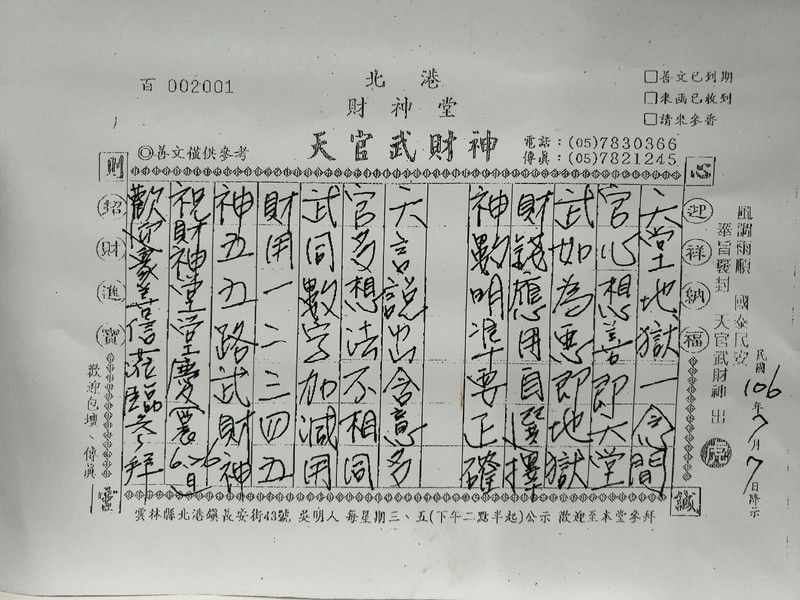 百 002001
北港
財神堂
天官武財神
◎善文僅供參考
□善文已到期
□來函已收到
□請來參香
電話:(05)7830366
傳真:(05)7821245
心誠則靈
迎祥納福
招財進寶
風調雨順 國泰民安
奉旨發封 天官武財神 出
民國106年7月7日降示
天堂地獄一念間
官心想善即天堂
武如為惡即地獄
財錢應用自選擇
神數明準要正確
天言說出含意多
官多想法不相同
武同數字加減用
財用一二三四五
神五五路武財神
祝財神堂堂慶農6.26日
歡迎眾善信蒞臨參拜
歡迎包壇、傳真
雲林縣北港鎮長安街43號 吳明人 每星期三、五(下午二點半起)公示 歡迎至本堂參拜